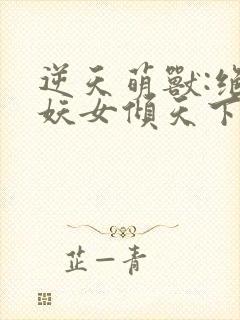 逆天萌獸:絕
妖女傾天下
芷一青